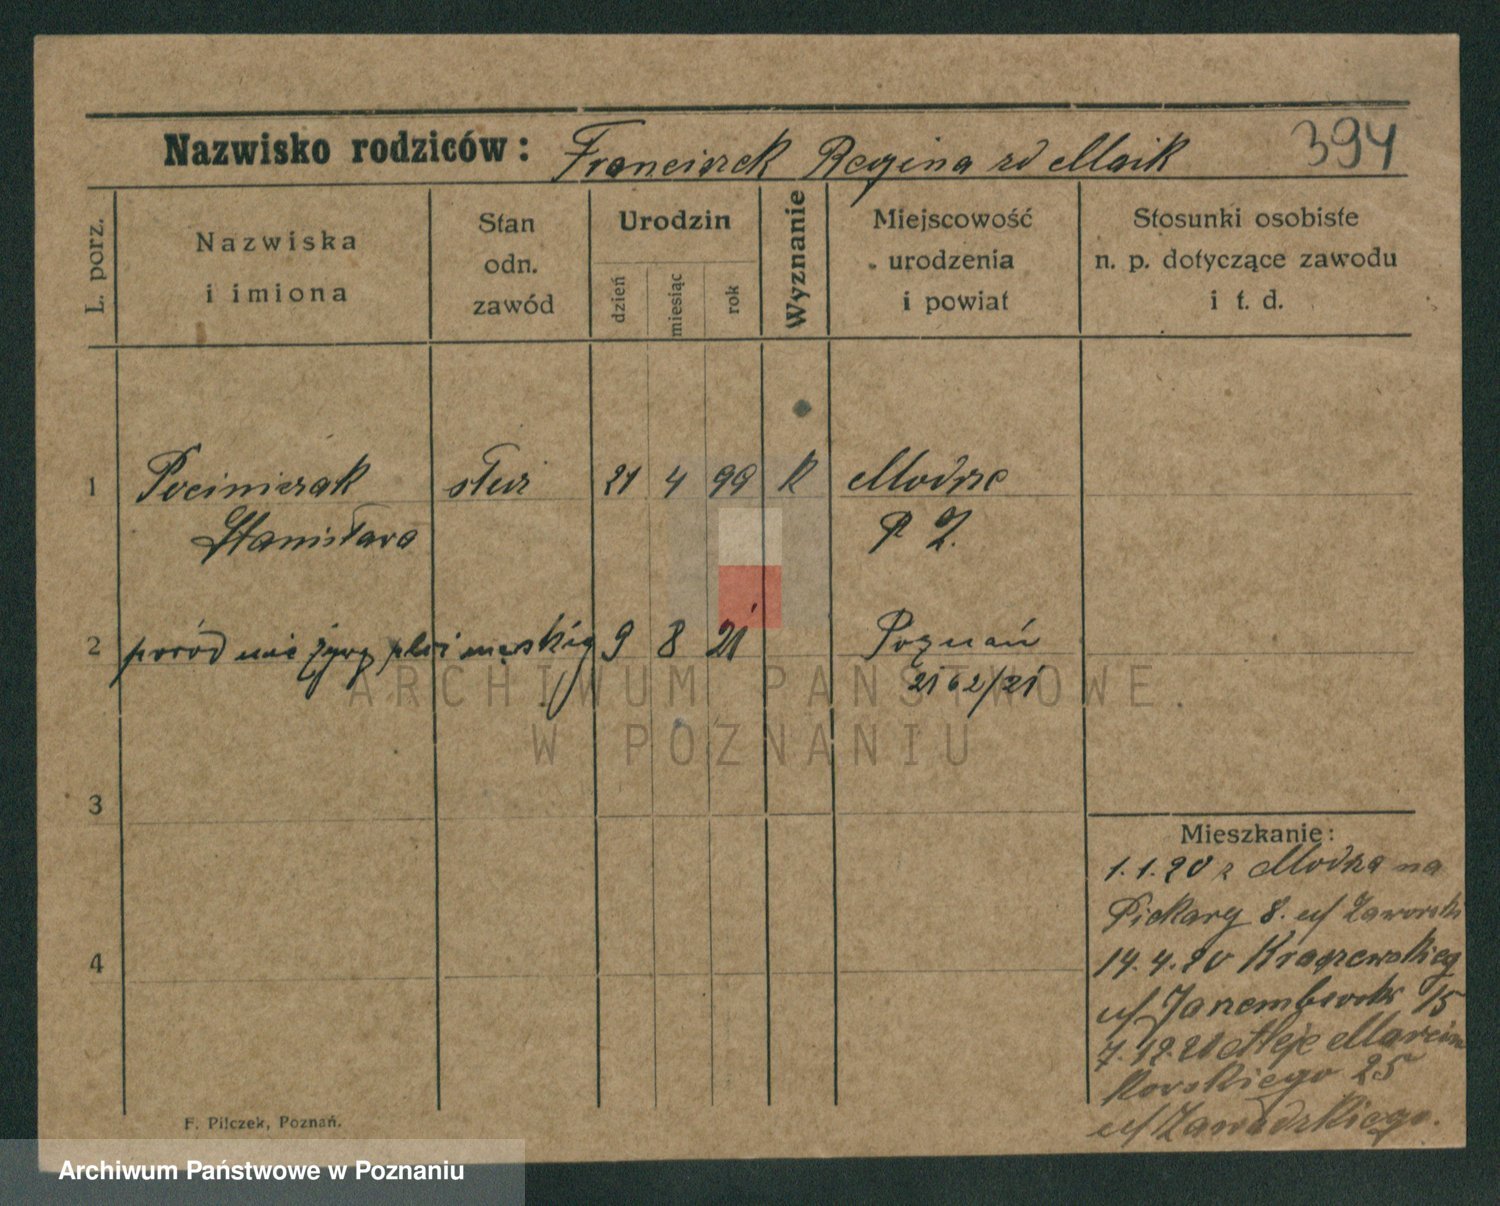 Nazwisko rodziców: Franciszek Regina zd Maik 394
L. porz.
Nazwiska i imiona
Stan odn. zawód
Urodzin
dzień
miesiąc
rok
Wyznanie
Miejscowość urodzenia i powiat
Stosunki osobiste n. p. dotyczące zawodu i t. d.
1 Stanisława
21 4 99 K Modrze
P
2 poród nie żywy płci męskiej 9 8 21 Poznań
2162/21
3
Mieszkanie:
1.1.20 z Modrza na
Piekary 8. u/
4
14.4.20 Kraszewskieg
u/ 15
7.12.20 Aleje Marcin
kowskiego 25
u/ Zawadzkiego.
F. Pilczek, Poznań.
ARCHIWUM PAŃSTWOWE
W POZNANIU
Archiwum Państwowe w Poznaniu